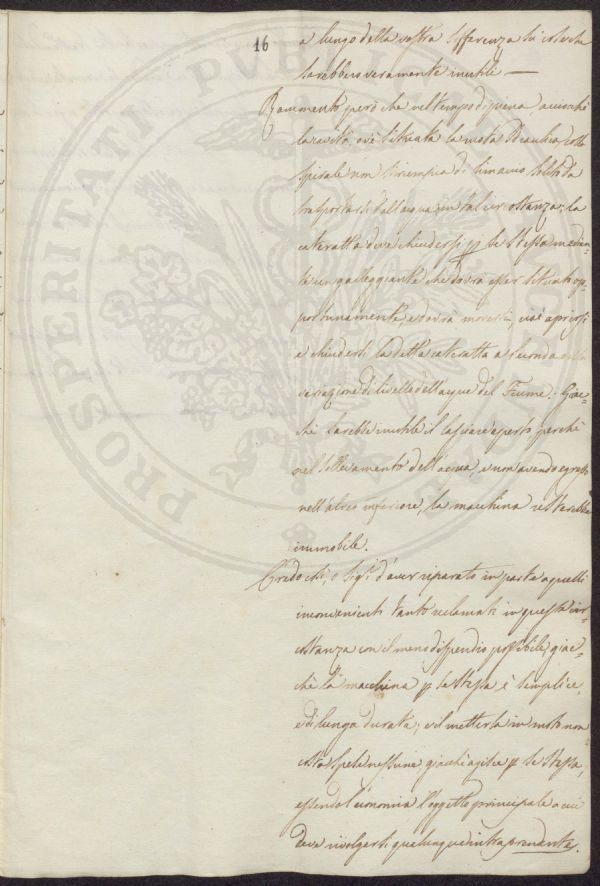 16
a lungo della vostra sofferenza su cose che
sarebbero veramente inutili —
Rammento però che nel tempo di piena acciochè
la cavità, ov'è situata la ruota Idraulica colla
spirale non si riempia di limaccio solito da
trasportarsi dall'acqua in tal circostanza; la
cateratta deve chiudersi p se stessa median-
te un galleggiante che dovrà esser situato op-
portunamente, e dovrà moversi, cioè aprirsi
e chiudersi la detta cateratta a seconda della
variazione di livello dell'acque del Fiume. Giac-
chè sarebbe inutile il lasciare aperto perchè
nel sollevamento dell'acqua, e non avendo egresso
nell'alveo inferiore, la macchina resterebbe
immobile.
Credo chi, o Sigi. d'aver riparato in parte a quelli
inconvenienti tanto reclamati in questa cir-
costanza con il meno dispendio possibile, giac-
chè la macchina p se stessa è semplice,
e di lunga durata; e il metterla in moto non
costa spese nessune, giacchè agisce p se stessa,
essendo l'economia l'oggetto principale a cui
deve rivolgersi qualunque intraprendente.
PROSPERITATI PUBLICAE